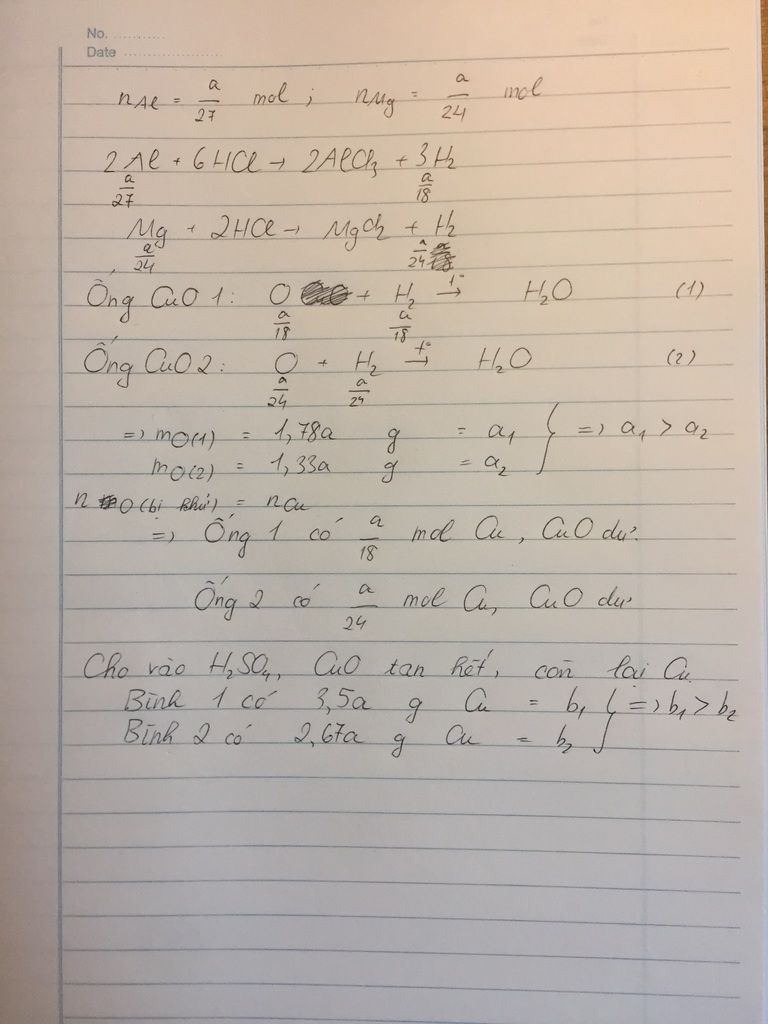 No. ............
Date .......................
nAl = a/27 mol ; nMg = a/24 mol
2Al + 6HCl → 2AlCl3 + 3H2
a/27 a/18
Mg + 2HCl → MgCl2 + H2
a/24 a/24
Ống CuO 1: O + H2 t°→ H2O (1)
a/18 a/18
Ống CuO 2: O + H2 t°→ H2O (2)
a/24 a/24
=> mO(1) = 1,78a g = a1 } => a1 > a2
mO(2) = 1,33a g = a2
nO(bị khử) = nCu
=> Ống 1 có a/18 mol Cu, CuO dư.
Ống 2 có a/24 mol Cu, CuO dư
Cho vào H2SO4, CuO tan hết, còn lại Cu
Bình 1 có 3,5a g Cu = b1 } => b1 > b2
Bình 2 có 2,67a g Cu = b2